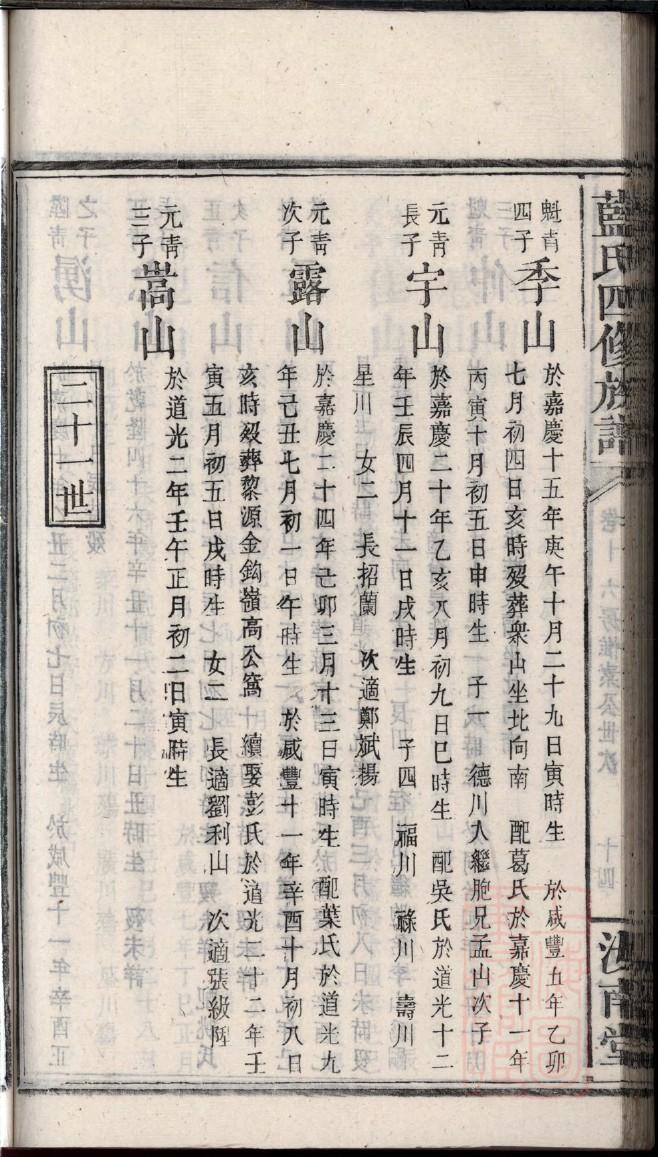 藍氏四修族譜
卷十六易惟素公世次
十四
汝南堂
魁青
四子
季山
於嘉慶十五年庚午十月二十九日寅時生 於咸豐五年乙卯
七月初四日亥時歿葬衆山坐北向南 配葛氏於嘉慶十一年
丙寅十月初五日申時生 子一 德川人繼胞兄孟山次子
元青
長子
宇山
於嘉慶二十年乙亥八月初九日巳時生 配吳氏於道光十二
年壬辰四月十一日戌時生 子四 福川 祿川 壽川
星川 女二 長招蘭 次適鄭斌揚
元青
次子
露山
於嘉慶二十四年己卯三月十三日寅時生 配葉氏於道光九
年己丑七月初一日午時生 於咸豐十一年辛酉十月初八日
亥時歿葬黎源金鈎嶺高公窩 續娶彭氏於道光二十二年壬
寅五月初五日戌時生 女二 長適劉利山 次適張級陞
元青
三子
嵩山
於道光二年壬午正月初二日寅時生
二十一世